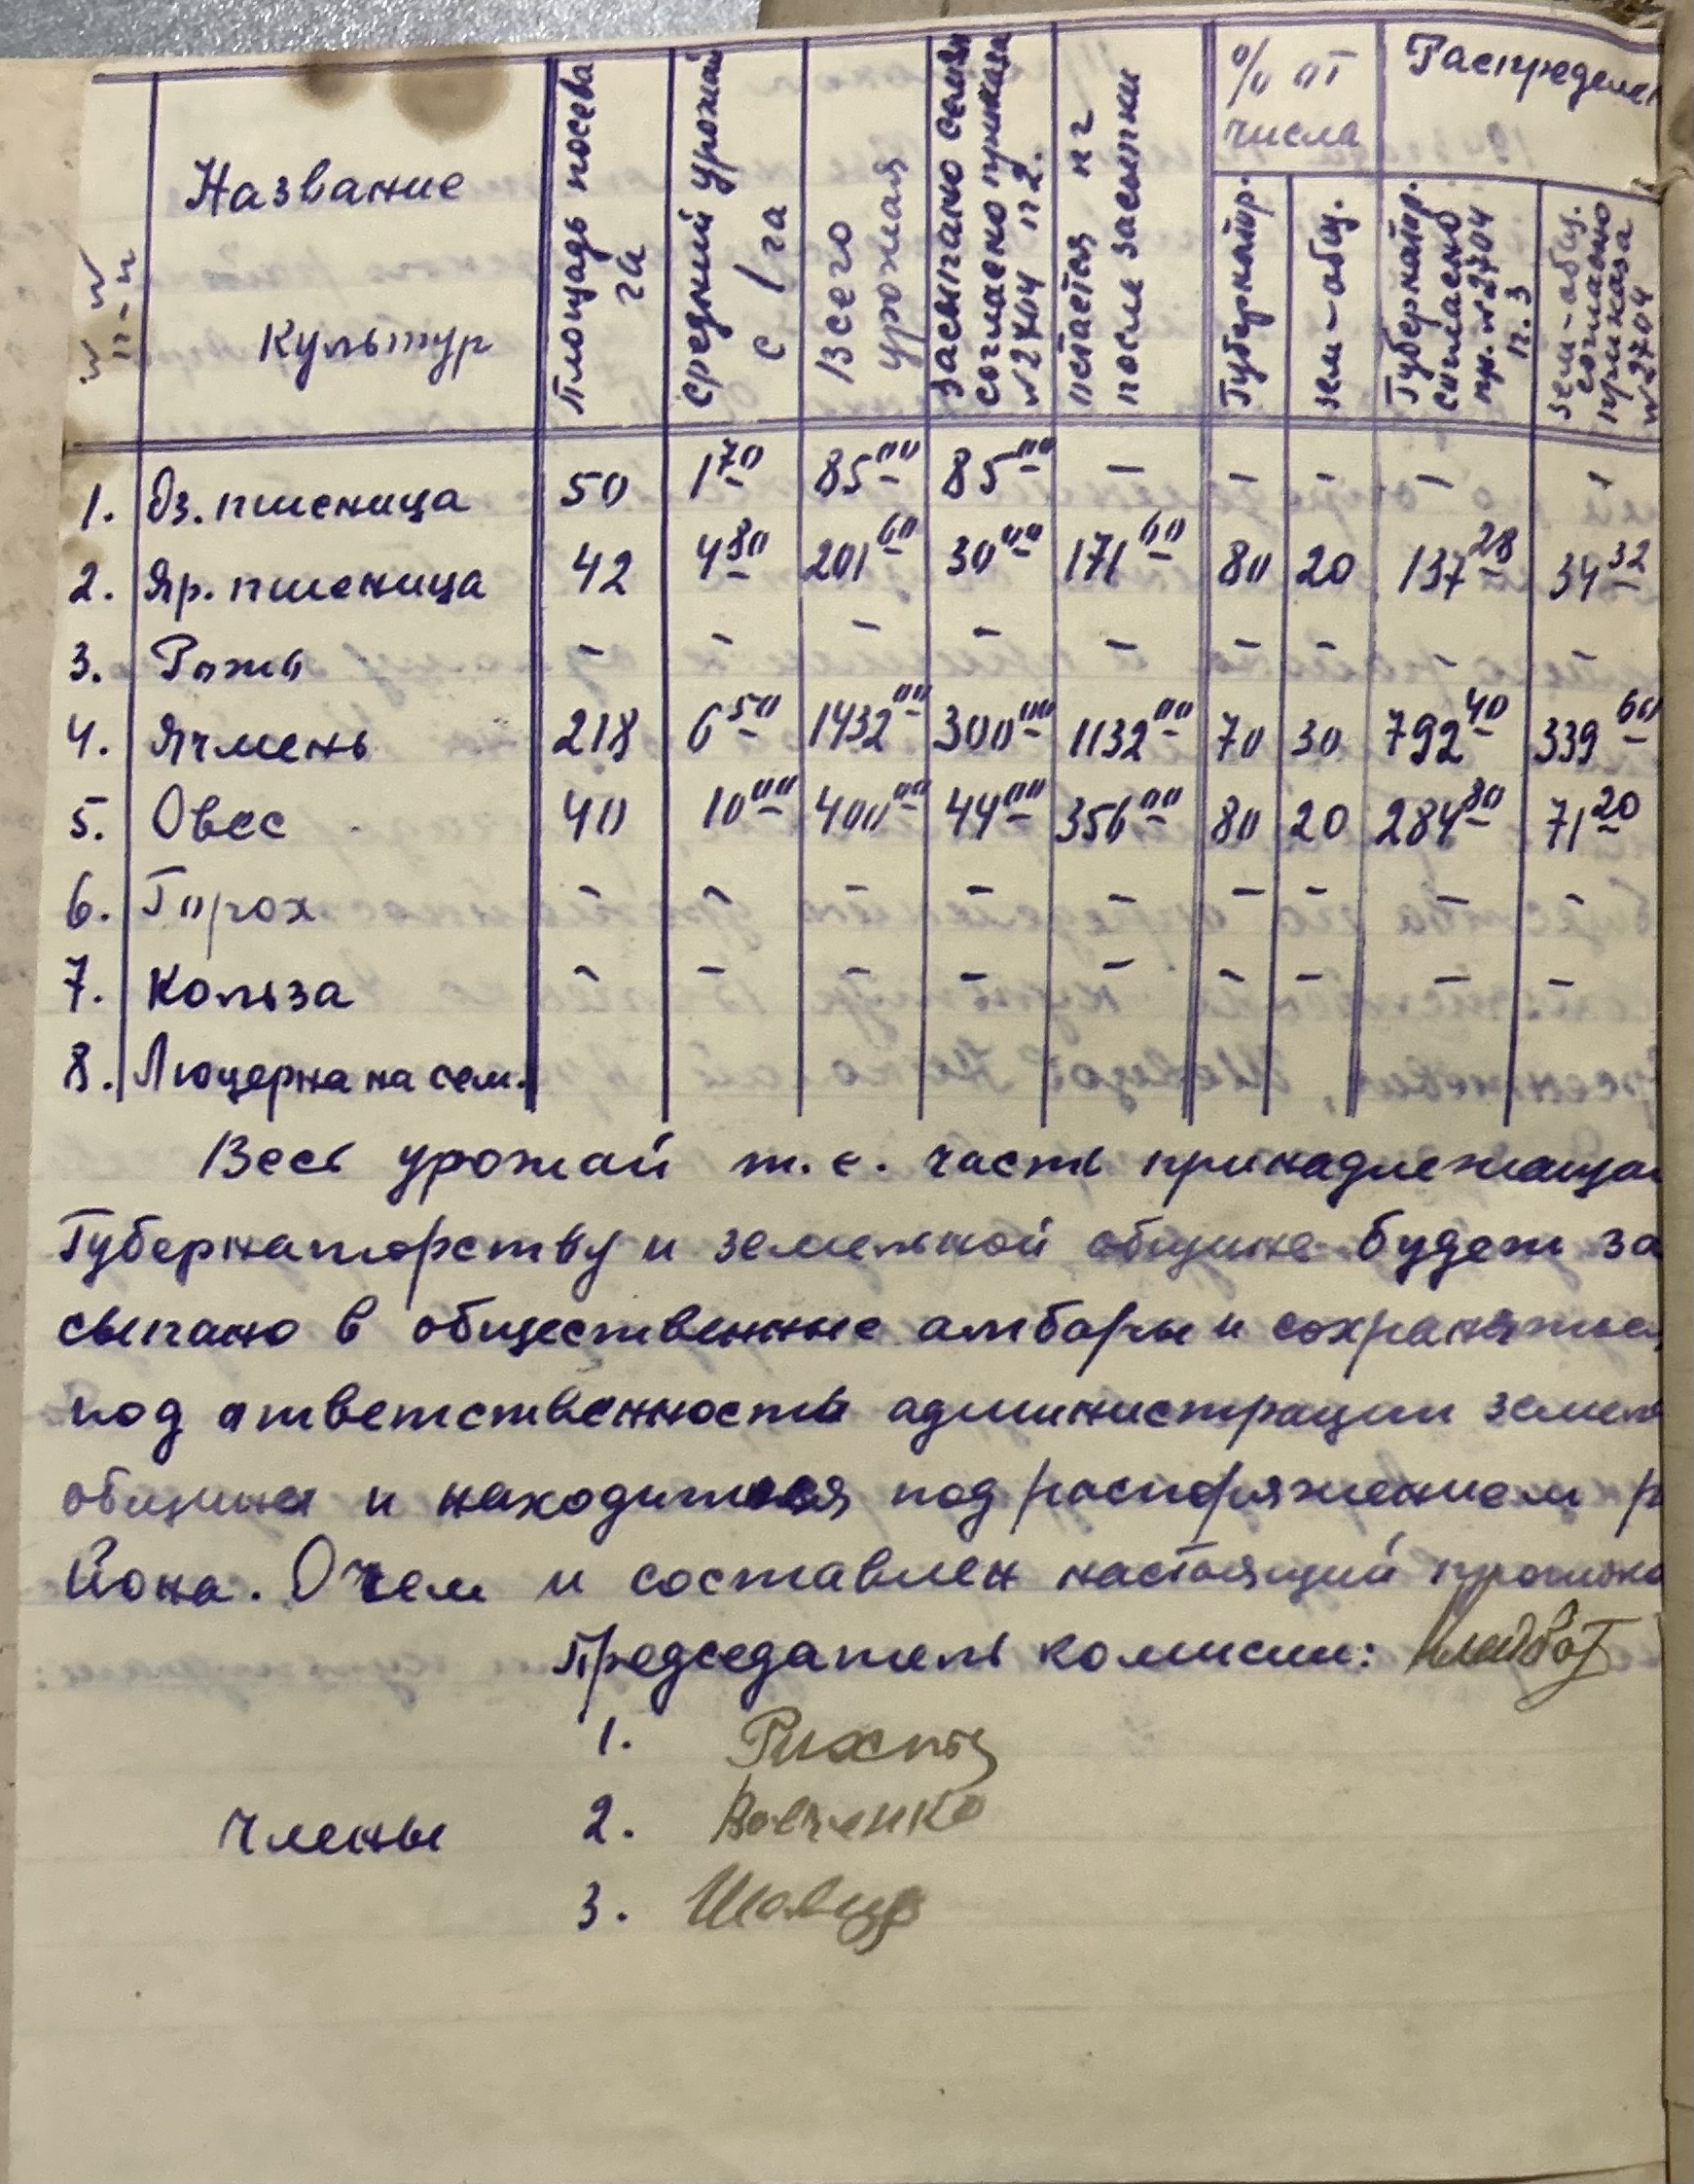 №№ п-п
Название культур
Площадь посева га
Средний урожай с/га
Всего урожая
Засыпано семян согласно приказа №2704 п 2.
Остается пог после засыпки
% от числа
Губернатр.
зем-общ.
Распределен
Губернатр. согласно пр. №2704 п. 3
зем-общ. согласно приказа №2704
1. Оз. пшеница 50 1 70 85 00 85 00 – – – – –
2. Яр. пшеница 42 4 80 201 60 30 00 171 60 80 20 137 28 34 32
3. Рожь – – – – – – – – –
4. Ячмень 218 6 50 1432 00 300 00 1132 00 70 30 792 40 339 60
5. Овес 40 10 00 400 00 44 00 356 00 80 20 284 80 71 20
6. Горох – – – – – – – – –
7. Кольза – – – – – – – – –
8. Люцерна на сем.
Весь урожай т.е. часть принадлежащая
Губернаторству и земельной общине будет за
сыпано в общественные амбары и сохраняться
под ответственность администрации земел
общины и находиться под распоряжением р
йона. О чем и составлен настоящий протоко
Председатель комисии:
1. Рихтер
Члены 2. Вовченко
3. Швец